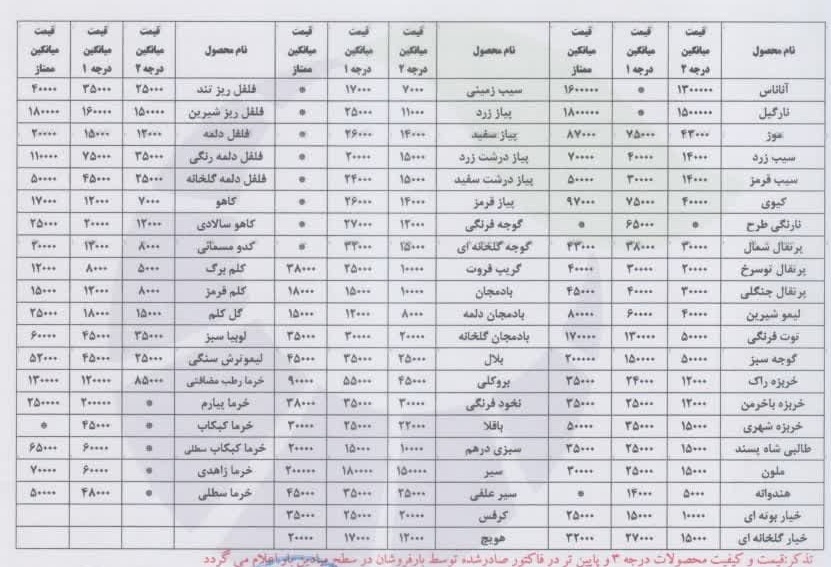 نام محصول قیمت میانگین درجه ۲ قیمت میانگین درجه ۱ قیمت میانگین ممتاز نام محصول قیمت میانگین درجه ۲ قیمت میانگین درجه ۱ قیمت میانگین ممتاز نام محصول قیمت میانگین درجه ۲ قیمت میانگین درجه ۱ قیمت میانگین ممتاز
آناناس ۱۳۰۰۰۰۰ * ۱۶۰۰۰۰۰ سیب زمینی ۷۰۰۰ ۱۷۰۰۰ * فلفل ریز تند ۲۵۰۰۰ ۳۵۰۰۰ ۴۰۰۰۰
نارگیل ۱۵۰۰۰۰۰ * ۱۸۰۰۰۰۰ پیاز زرد ۱۱۰۰۰ ۲۵۰۰۰ * فلفل ریز شیرین ۱۵۰۰۰۰ ۱۶۰۰۰۰ ۱۸۰۰۰۰
موز ۴۳۰۰۰ ۷۵۰۰۰ ۸۷۰۰۰ پیاز سفید ۱۴۰۰۰ ۲۶۰۰۰ * فلفل دلمه ۱۲۰۰۰ ۱۵۰۰۰ ۲۰۰۰۰
سیب زرد ۱۴۰۰۰ ۴۰۰۰۰ ۷۰۰۰۰ پیاز درشت زرد ۱۵۰۰۰ ۲۰۰۰۰ * فلفل دلمه رنگی ۳۵۰۰۰ ۷۵۰۰۰ ۱۱۰۰۰۰
سیب قرمز ۱۴۰۰۰ ۳۰۰۰۰ ۵۰۰۰۰ پیاز درشت سفید ۱۵۰۰۰ ۲۴۰۰۰ * فلفل دلمه گلخانه ۲۵۰۰۰ ۴۵۰۰۰ ۵۰۰۰۰
کیوی ۴۰۰۰۰ ۷۵۰۰۰ ۹۷۰۰۰ پیاز قرمز ۱۴۰۰۰ ۲۶۰۰۰ * کاهو ۷۰۰۰ ۱۲۰۰۰ ۱۷۰۰۰
نارنگی طرح * ۶۵۰۰۰ * گوجه فرنگی ۱۲۰۰۰ ۲۷۰۰۰ * کاهو سالادی ۱۲۰۰۰ ۲۰۰۰۰ ۲۵۰۰۰
پرتقال شمال ۳۰۰۰۰ ۳۸۰۰۰ ۴۳۰۰۰ گوجه گلخانه ای ۱۵۰۰۰ ۳۲۰۰۰ * کدو مسمائی ۸۰۰۰ ۱۳۰۰۰ ۲۰۰۰۰
پرتقال توسرخ ۲۰۰۰۰ ۳۰۰۰۰ ۴۰۰۰۰ گریپ فروت ۱۰۰۰۰ ۲۵۰۰۰ ۳۸۰۰۰ کلم برگ ۵۰۰۰ ۸۰۰۰ ۱۲۰۰۰
پرتقال جنگلی ۳۰۰۰۰ ۴۰۰۰۰ ۴۵۰۰۰ بادمجان ۱۰۰۰۰ ۱۵۰۰۰ ۱۸۰۰۰ کلم قرمز ۸۰۰۰ ۱۲۰۰۰ ۱۵۰۰۰
لیمو شیرین ۴۰۰۰۰ ۶۰۰۰۰ ۸۰۰۰۰ بادمجان دلمه ۸۰۰۰ ۱۲۰۰۰ ۱۵۰۰۰ گل کلم ۱۵۰۰۰ ۱۸۰۰۰ ۲۵۰۰۰
توت فرنگی ۵۰۰۰۰ ۱۳۰۰۰۰ ۱۷۰۰۰۰ بادمجان گلخانه ۲۰۰۰۰ ۳۰۰۰۰ ۳۵۰۰۰ لوبیا سبز ۳۵۰۰۰ ۴۵۰۰۰ ۶۰۰۰۰
گوجه سبز ۵۰۰۰۰ ۱۵۰۰۰۰ ۲۰۰۰۰۰ بلال ۲۵۰۰۰ ۳۵۰۰۰ ۴۵۰۰۰ لیموترش سنگی ۲۵۰۰۰ ۴۵۰۰۰ ۵۲۰۰۰
خربزه راک ۱۲۰۰۰ ۲۴۰۰۰ ۳۵۰۰۰ بروکلی ۴۵۰۰۰ ۵۵۰۰۰ ۹۰۰۰۰ خرما رطب مضافتی ۸۵۰۰۰ ۱۲۰۰۰۰ ۱۳۰۰۰۰
خربزه باخرمن ۱۲۰۰۰ ۲۵۰۰۰ ۳۵۰۰۰ نخود فرنگی ۳۰۰۰۰ ۳۵۰۰۰ ۳۸۰۰۰ خرما پیارم * ۲۰۰۰۰۰ ۲۵۰۰۰۰
خربزه شهری ۱۵۰۰۰ ۳۵۰۰۰ ۵۰۰۰۰ باقلا ۲۲۰۰۰ ۲۵۰۰۰ ۳۰۰۰۰ خرما کبکاب * ۴۵۰۰۰ *
طالبی شاه پسند ۱۵۰۰۰ ۲۵۰۰۰ ۳۵۰۰۰ سبزی درهم ۱۰۰۰۰ ۱۵۰۰۰ ۲۰۰۰۰ خرما کبکاب سطلی * ۶۰۰۰۰ ۶۵۰۰۰
ملون ۱۵۰۰۰ ۲۵۰۰۰ ۳۰۰۰۰ سیر ۱۵۰۰۰۰ ۱۸۰۰۰۰ ۲۰۰۰۰۰ خرما زاهدی * ۶۰۰۰۰ ۷۰۰۰۰
هندوانه ۵۰۰۰ ۱۴۰۰۰ * سیر علفی ۲۵۰۰۰ ۳۵۰۰۰ ۴۵۰۰۰ خرما سطلی * ۴۸۰۰۰ ۵۰۰۰۰
خیار بوته ای ۱۰۰۰۰ ۱۵۰۰۰ ۲۵۰۰۰ کرفس ۲۰۰۰۰ ۲۵۰۰۰ ۳۵۰۰۰
خیار گلخانه ای ۱۵۰۰۰ ۲۷۰۰۰ ۳۲۰۰۰ هویج ۱۲۰۰۰ ۱۷۰۰۰ ۲۰۰۰۰
تذکر:قیمت و کیفیت محصولات درجه ۳ و پایین تر در فاکتور صادرشده توسط بارفروشان در سطح میادین بار اعلام می گردد